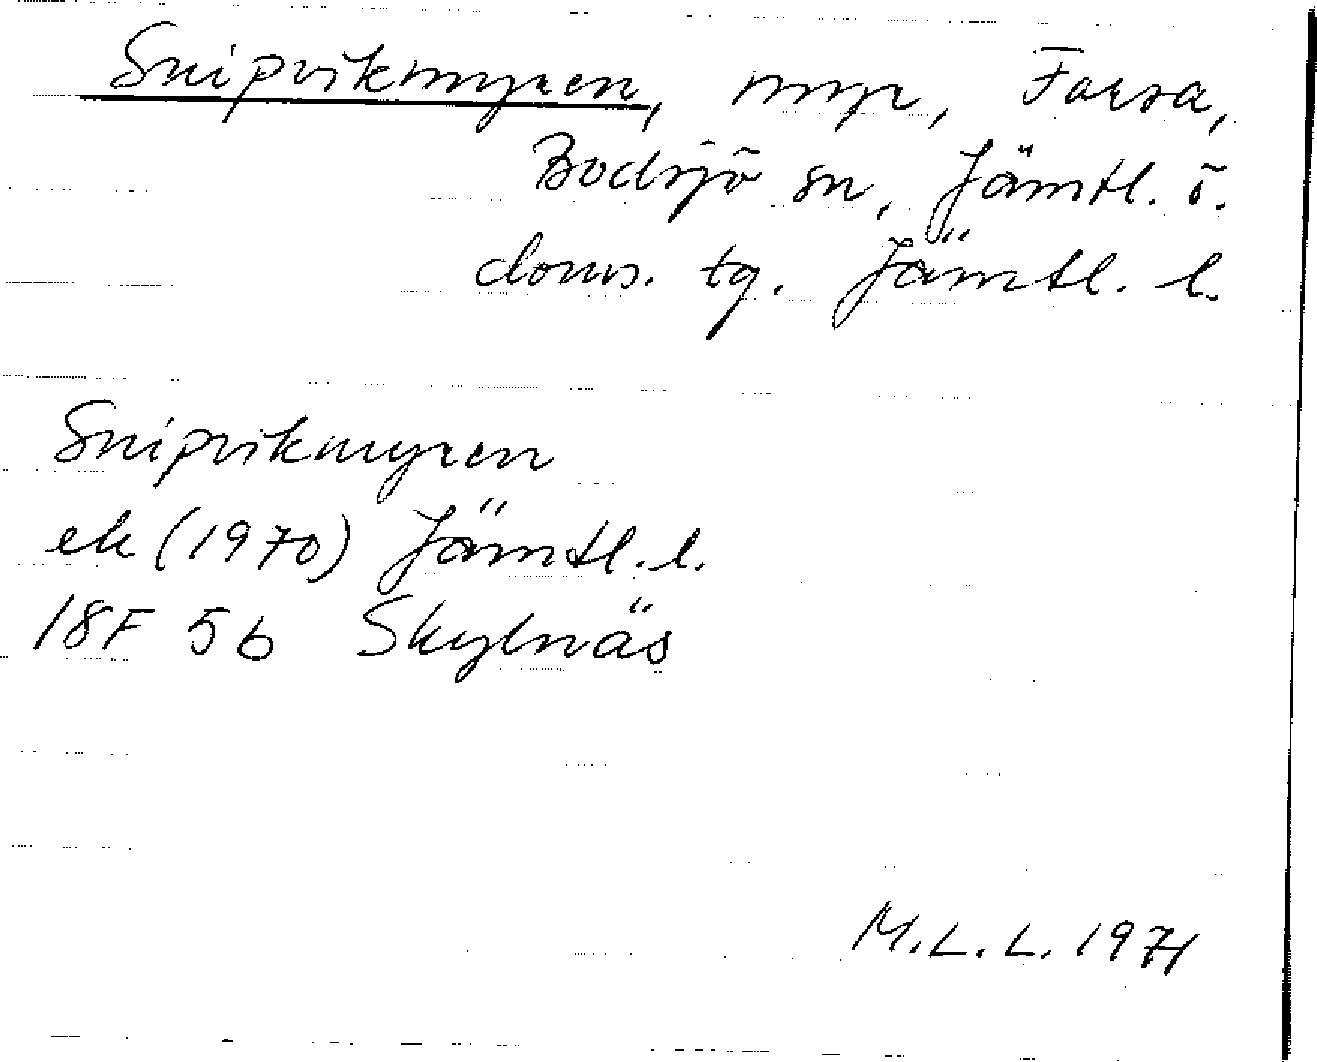 Snipvikmyren, myr, Farsa,
Bodsjö sn, Jämtl. ö.
doms. tg. Jämtl. l.
Snipvikmyren
ek (1970) Jämtl. l.
18F 5b Skylnäs
M.L.L. 1971